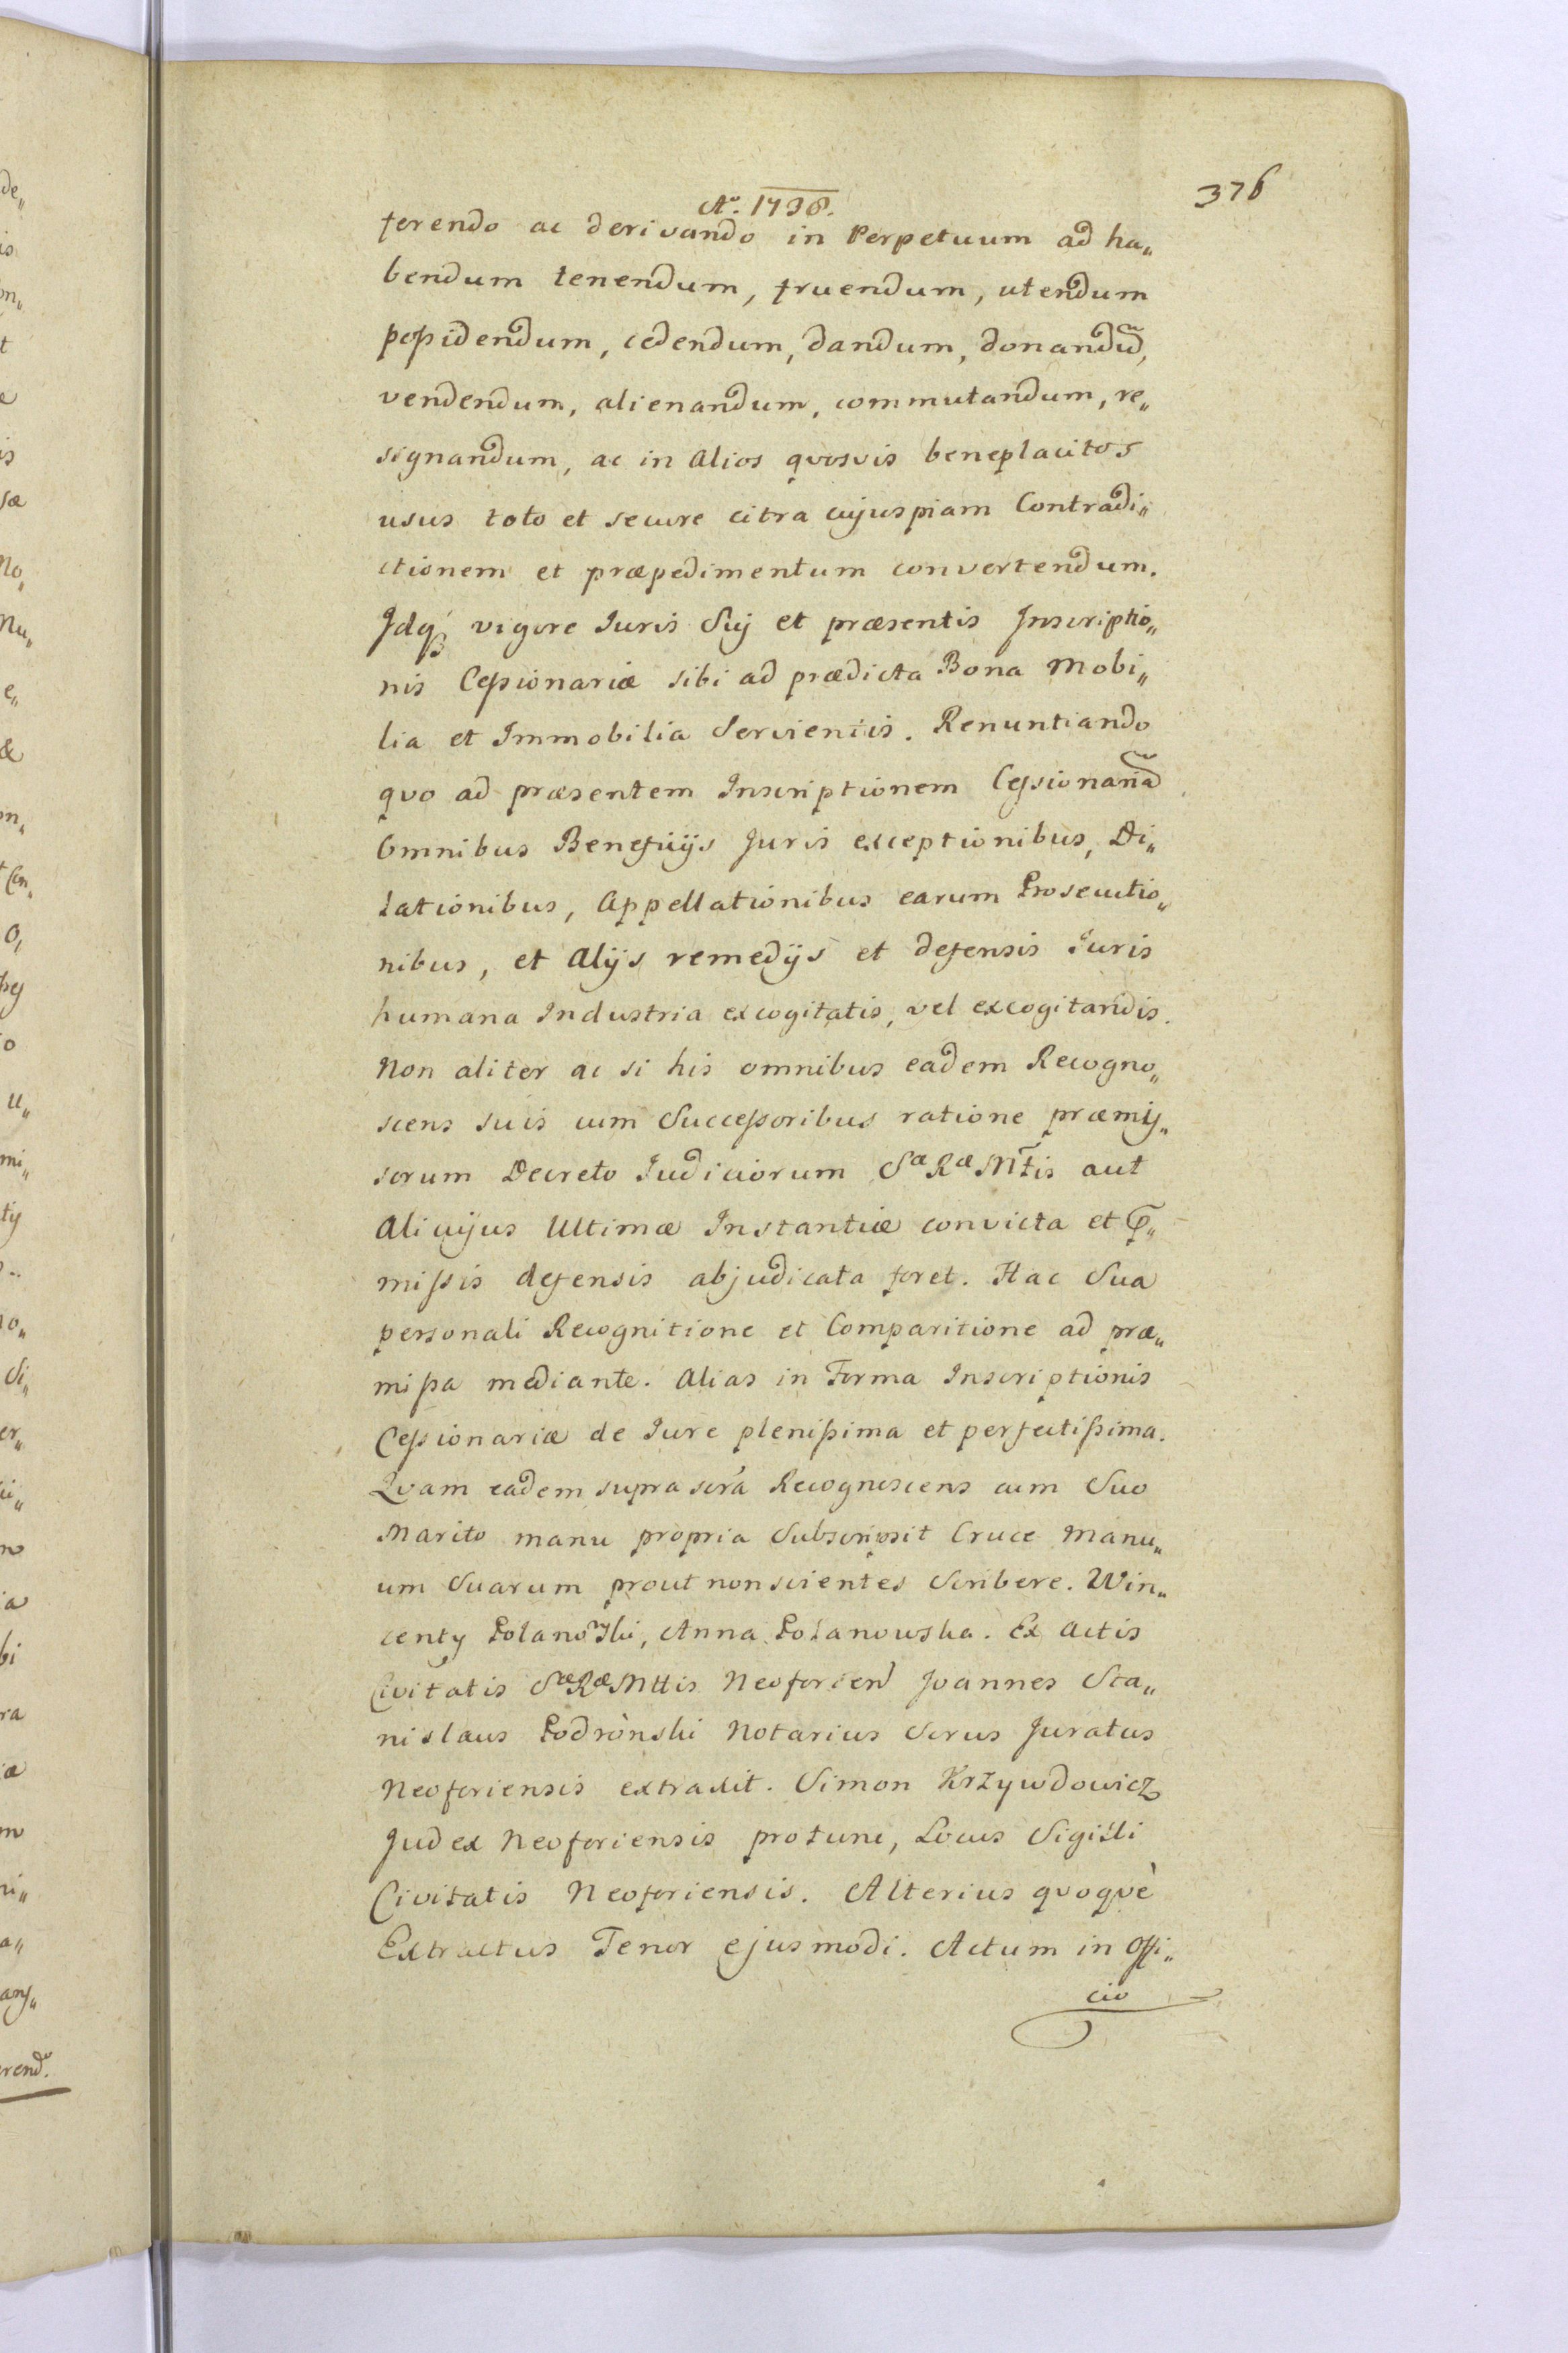 376
Aº. 1738.
ferendo ac derivando in Perpetuum ad ha„
bendum tenendum, fruendum, utendum
poßidendum, cedendum, dandum, donandũ,
vendendum, alienandum, commutandum, re„
signandum, ac in Alios quosvis beneplacitos
usus toto et secure citra cujuspiam Contradi„
ctionem et præpedimentum convertendum.
Idqꝫ vigore Iuris Suj et præsentis Inscriptio„
nis Ceßionariæ sibi ad prædicta Bona Mobi„
lia et Immobilia Servientis. Renuntiando
quo ad præsentem Inscriptionem Ceßionariã
Omnibus Beneficijs Juris exceptionibus, Di„
lationibus, Appellationibus earum Prosecutio„
nibus, et Alijs remedijs et defensis Iuris
humana Industria excogitatis, vel excogitandis.
Non aliter ac si his omnibus eadem Recogno„
scens suis cum Succeßoribus ratione præmis„
sorum Decreto Iudiciorum Sæ Ræ Mtis aut
Alicujus Ultimæ Instantiæ convicta et
mißis defensis abjudicata foret. Hac Sua
personali Recognitione et Comparitione ad præ„
mißa mediante. Alias in Forma Inscriptionis
Ceßionariæ de Iure plenißima et perfectißima.
Quam eadem supra scrã Recognoscens cum Suo
Marito manu propria Subscripsit Cruce Manu„
um Suarum prout non scientes Scribere. Win„
centy Polanowski, Anna Polanowska. Ex Actis
Civitatis Sæ Ræ Mttis Neoforien Joannes Sta„
nislaus Podronski Notarius Scrus Juratus
Neoforiensis extraxit. Simon Krzywdowicz
Judex Neoforiensis protunc, Locus Sigilli
Civitatis Neoforiensis. Alterius quoquè
Extractus Tenor ejusmodi. Actum in Offi„
cio